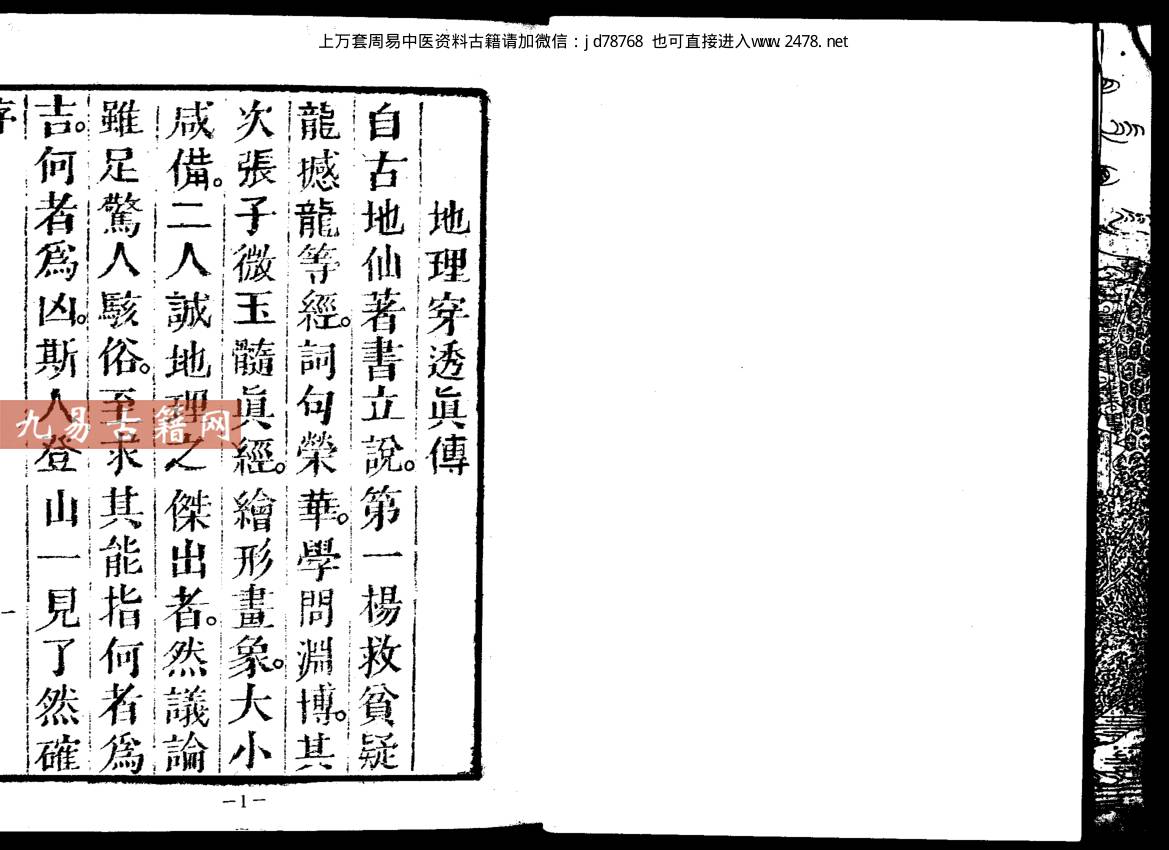 上万套周易中医资料古籍请加微信：jd78768 也可直接进入www.2478.net
地理穿透眞傳
自古地仙著書立說。第一楊救貧疑
龍撼龍等經。詞句榮華。學問淵博。其
次張子微玉髓眞經。繪形畫象。大小
咸備。二人誠地理之傑出者。然議論
雖足驚人駭俗。至求其能指何者爲
吉。何者爲凶。斯人登山一見了然確
序
一
九易古籍网
—1—